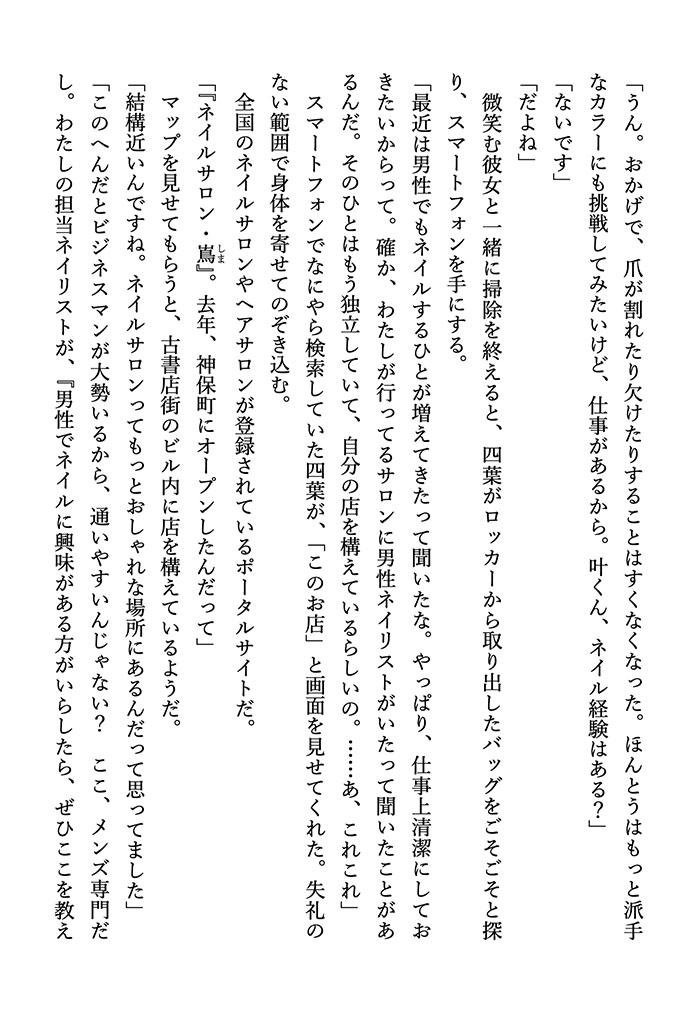 「うん。おかげで、爪が割れたり欠けたりすることはすくなくなった。ほんとうはもっと派手
なカラーにも挑戦してみたいけど、仕事があるから。叶くん、ネイル経験はある？」
「ないです」
「だよね」
　微笑む彼女と一緒に掃除を終えると、四葉がロッカーから取り出したバッグをごそごそと探
り、スマートフォンを手にする。
「最近は男性でもネイルするひとが増えてきたって聞いたな。やっぱり、仕事上清潔にしてお
きたいからって。確か、わたしが行ってるサロンに男性ネイリストがいたって聞いたことがあ
るんだ。そのひとはもう独立していて、自分の店を構えているらしいの。……あ、これこれ」
　スマートフォンでなにやら検索していた四葉が、「このお店」と画面を見せてくれた。失礼の
ない範囲で身体を寄せてのぞき込む。
　全国のネイルサロンやヘアサロンが登録されているポータルサイトだ。
「『ネイルサロン・嶌しま』。去年、神保町にオープンしたんだって」
　マップを見せてもらうと、古書店街のビル内に店を構えているようだ。
「結構近いんですね。ネイルサロンってもっとおしゃれな場所にあるんだって思ってました」
「このへんだとビジネスマンが大勢いるから、通いやすいんじゃない？　ここ、メンズ専門だ
し。わたしの担当ネイリストが、『男性でネイルに興味がある方がいらしたら、ぜひここを教え